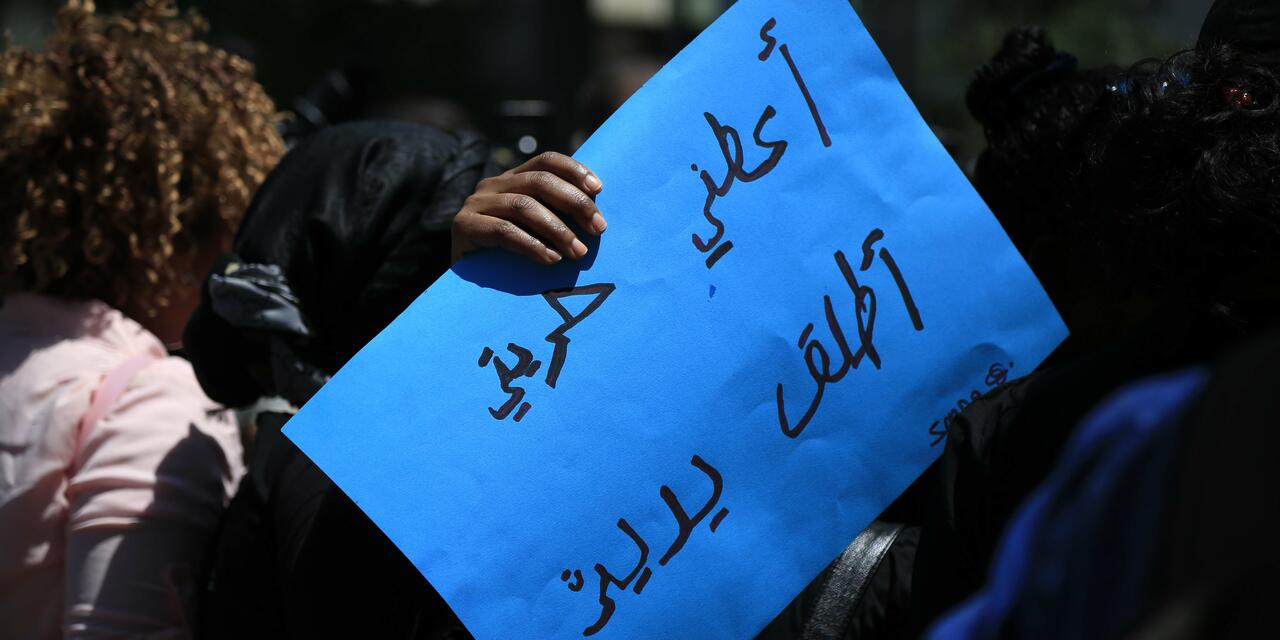 أعطني حريتي
أطلق يديّ